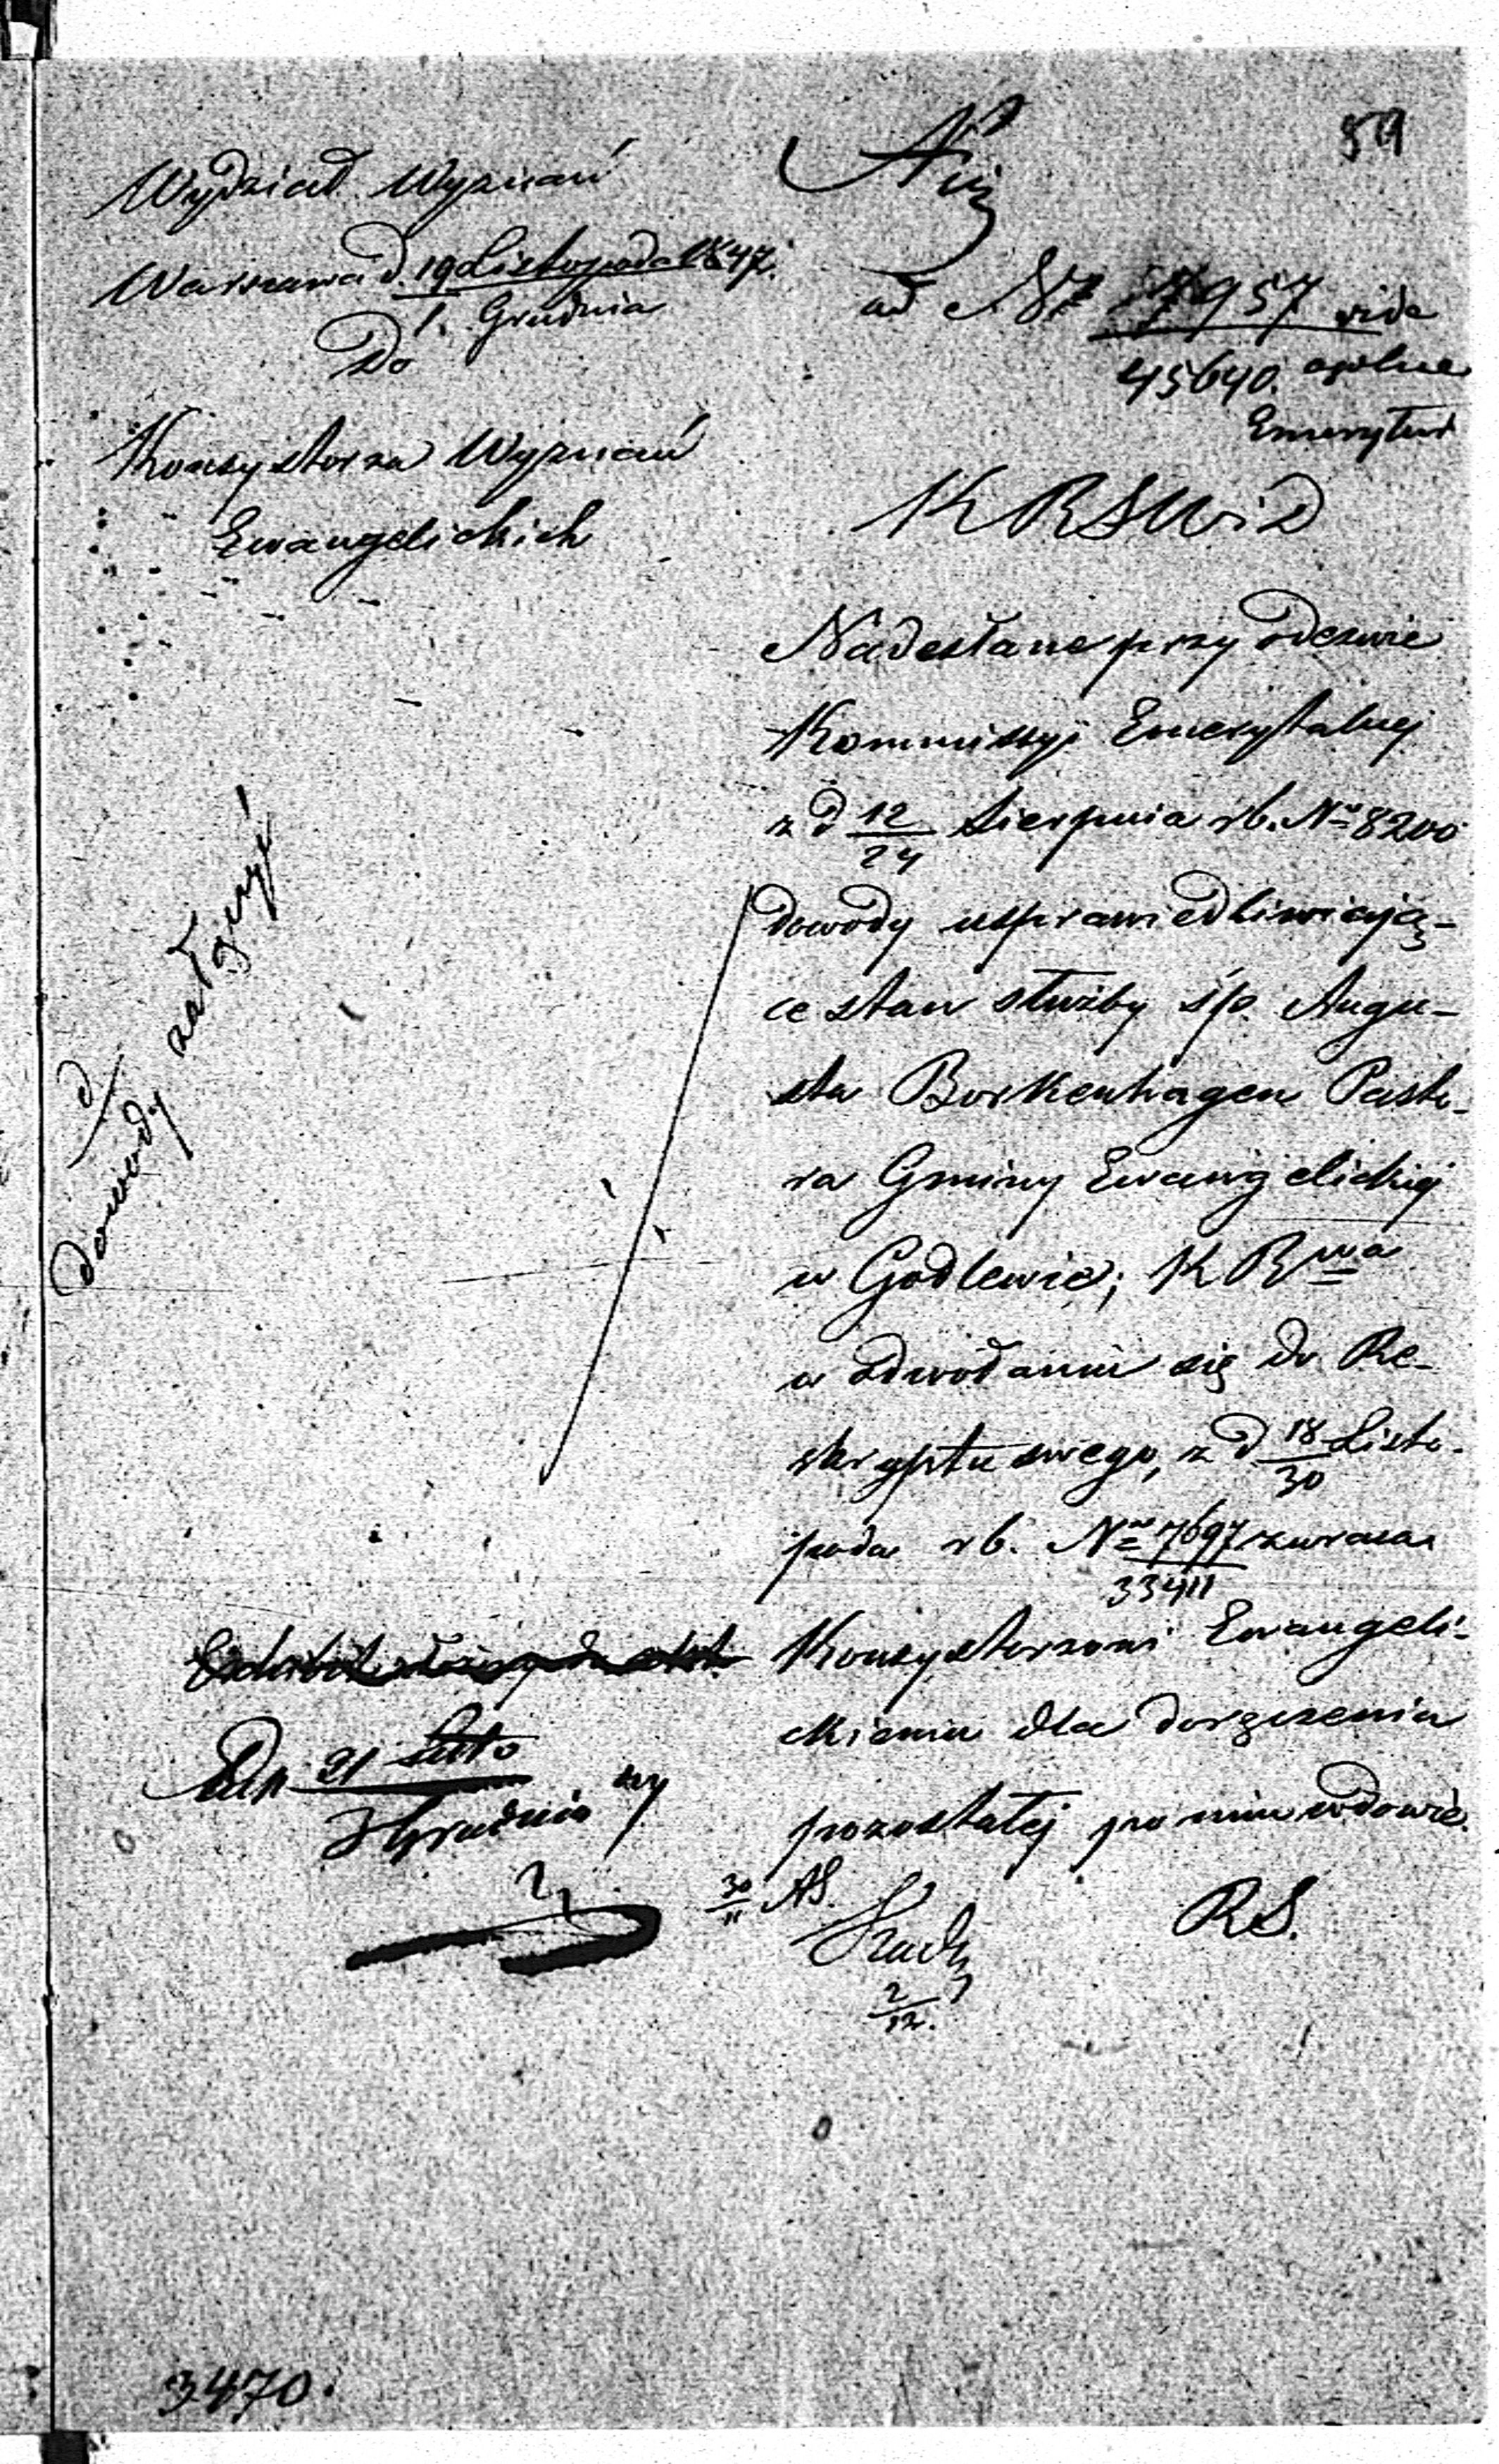 59
Wydział Wyznań
Warszawa d. 19 Listopada 1847.
1. Grudnia
Do
Konsystorza Wyznań
Ewangelickich
ad Nr 7957 vide
45640. ogólne
Emerytur
K R S W i D
Nadesłane przy odezwie
Kommissyi Emerytalnej
z d 12/24 Sierpnia rb. No 8200
dowody usprawiedliwiają-
ce stan służby śp. Augu-
sta Borkenhagen Pasto-
ra Gminy Ewangelickiej
w Godlewie; K Rwa
w odwołaniu się do Re-
skryptu swego, z d 18/30 Listo-
pada rb. No 7697/33411 zwraca
Konsystorzowi Ewangeli-
ckiemu dla doręczenia
pozostałej po nim wdowie.
R S.
30/11 AS.
2/12.
dowody załączyć
21 Listo
3 Grudnia 47
3470.